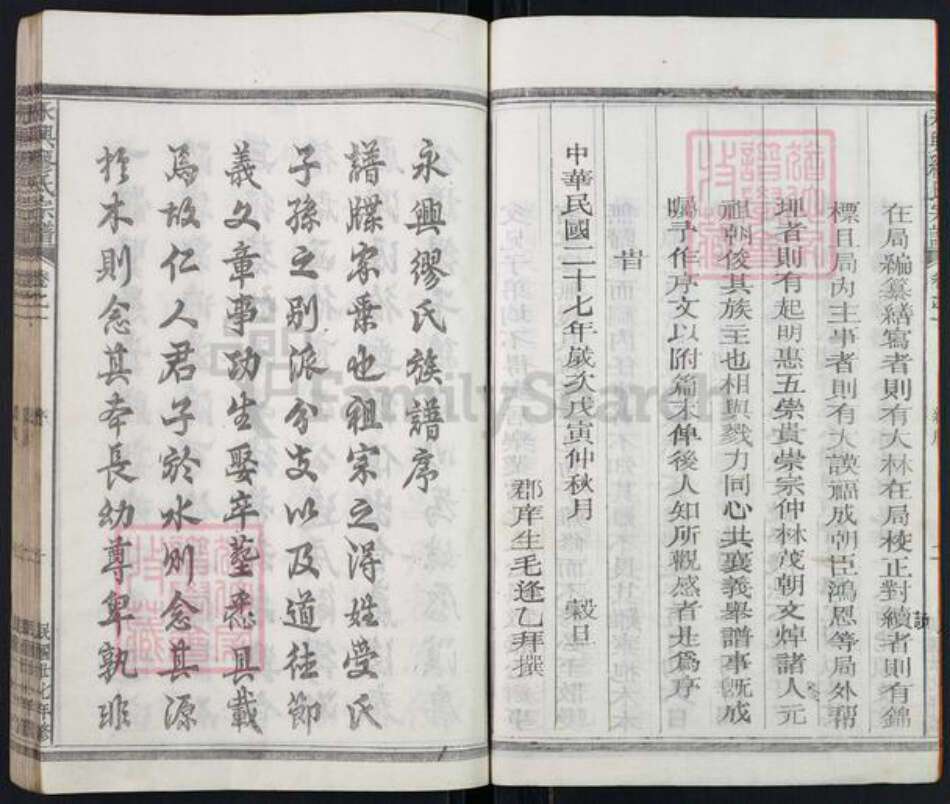 在局編纂繕寫者則有大林在局校正對續者則有錦
標目局內主事者則有大謨福成朝臣鴻恩等局外幇
理者則有起明惠五崇貴崇宗仲林茂朝文焯諸人元
祖朝俊其族主也相與戮力同心共襄義舉譜事既成
囑予作序文以附篇末俾後人知所觀感者此爲序
旹
中華民國二十七年歲次戊寅仲秋月 榖旦
郡庠生毛逢乙拜撰
永興繆氏族譜序
譜牒家乘也祖宗之得姓受氏
子孫之别派分支以及道徒節
義文章事功生娶卒塟悉具載
焉故仁人君子於水則念其源
於木則念其本長幼尊卑孰非
永興繆氏宗譜
民國廿七年修
FamilySearch